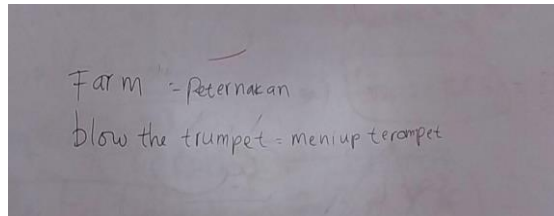 Farm = Peternakan
blow the trumpet = meniup terompet